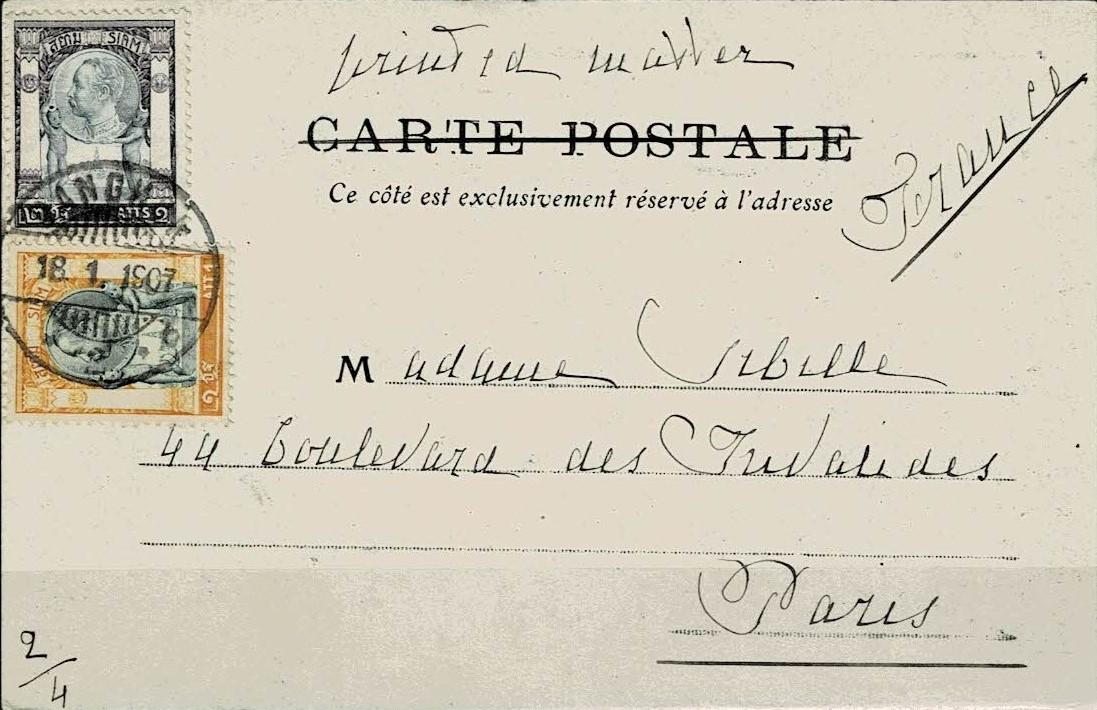 สยาม SIAM
๒ อัฐ ATTS 2
BANGKOK
18. 1. 1907
SIAM
๑ อัฐ ATT 1
printed matter
CARTE POSTALE
Ce côté est exclusivement réservé à l'adresse
France
Madame Sibille
44 Boulevard des Invalides
Paris
2/4